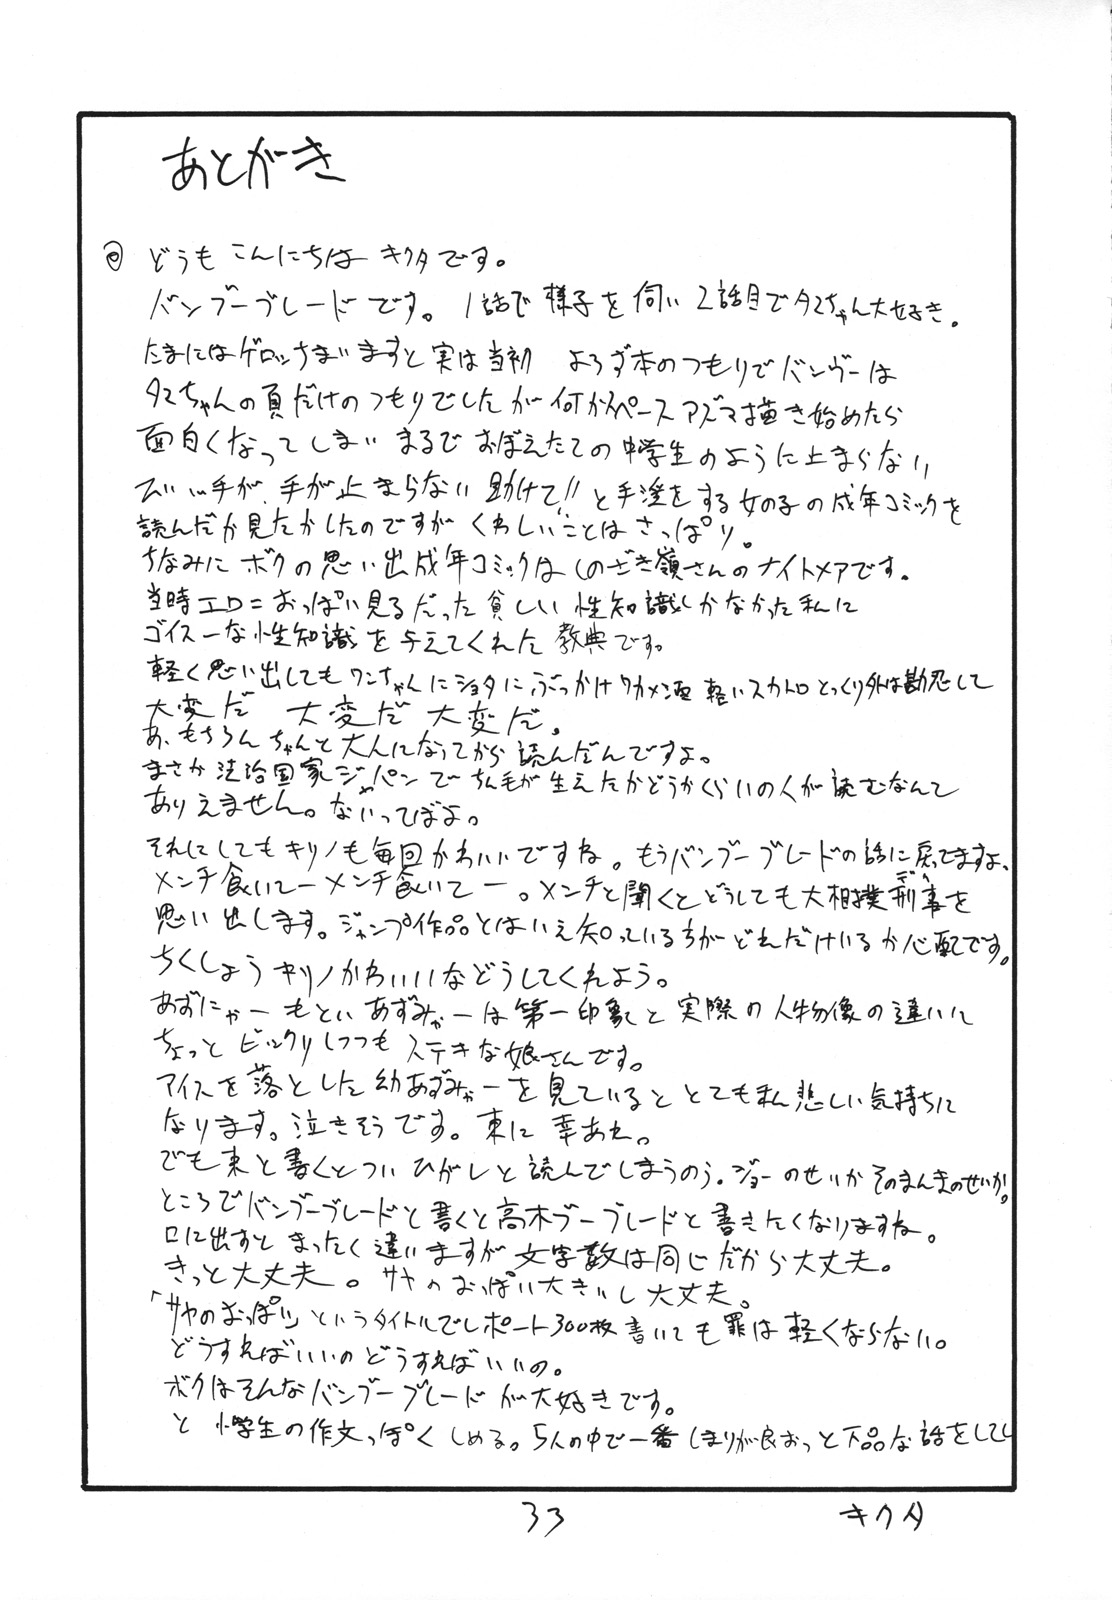 あとがき
どうも こんにちは キクタです。
バンブーブレードです。1話で様子を伺い2話目でタマちゃん大好き。
たまにはゲロッちまいますと実は当初 よろず本のつもりでバンブーは
タマちゃんの頁だけのつもりでしたが何かスペースアズマ描き始めたら
面白くなってしまい まるでおぼえたての中学生のように止まらない
手が、手が止まらない 助けて!!と手淫をする女の子の成年コミックを
読んだか見たかしたのですがくわしいことはさっぱり。
ちなみにボクの思い出成年コミックはしのざき嶺さんのナイトメアです。
当時エロ=おっぱい見るだった貧しい性知識しかなかった私に
ゴイスーな性知識を与えてくれた教典です。
軽く思い出してもワンちゃんにショタにぶっかけワカメ酒 軽いスカトロ とっくり外は勘忍して
大変だ 大変だ 大変だ。
あ、もちろんちゃんと大人になってから読んだんですよ。
まさか法治国家ジャパンでちん毛が生えたかどうかくらいの人が読むなんて
ありえません。ないってばよ。
それにしてもキリノも毎回かわいいですね。もうバンブーブレードの話に戻ってますよ、
メンチ食いてーメンチ食いてー。メンチと聞くとどうしても大相撲刑事を
思い出します。ジャンプ作品とはいえ知っている方がどれだけいるか心配です。
ちくしょうキリノかわいいなどうしてくれよう。
あずにゃーもといあずみゃーは第一印象と実際の人物像の違いに
ちょっとビックリしつつもステキな娘さんです。
アイスを落とした幼あずみゃーを見ているととても私悲しい気持ちに
なります。泣きそうです。東に幸あれ。
でも東と書くとついひがしと読んでしまうのう。ジョーのせいかそのまんまのせいか。
ところでバンブーブレードと書くと高木ブーブレードと書きたくなりますね。
口に出すとまったく違いますが文字数は同じだから大丈夫。
きっと大丈夫。サヤのおっぱい大きいし大丈夫。
「サヤのおっぱい」というタイトルでレポート300枚書いても罪は軽くならない。
どうすればいいのどうすればいいの。
ボクはそんなバンブーブレードが大好きです。
と 小学生の作文っぽくしめる。5人の中で一番しまりが良おっと下品な話をしてし
33
キクタ